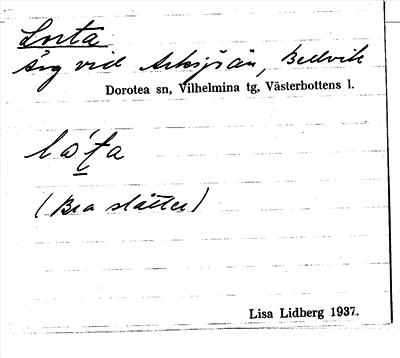 Lorta
Äng vid Arksjöån, Bellvik
Dorotea sn, Vilhelmina tg, Västerbottens l.
lo´ta
(Bra slåtter)
Lisa Lidberg 1937.